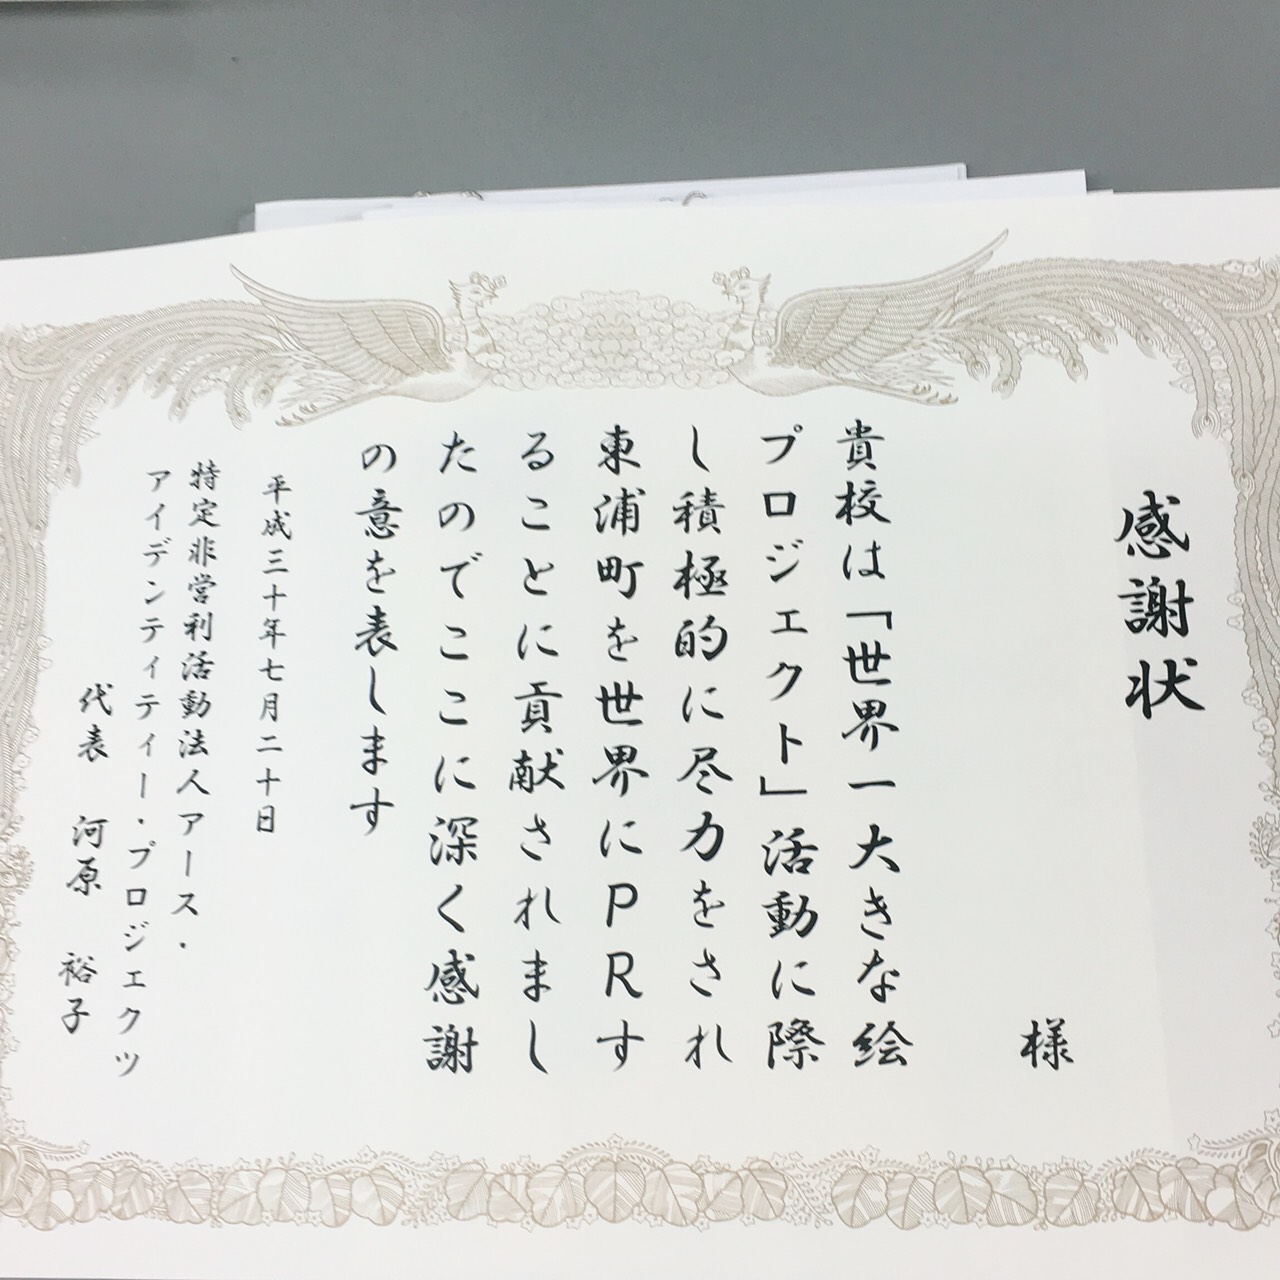 感謝状
様
貴校は「世界一大きな絵
プロジェクト」活動に際
し積極的に尽力をされ
東浦町を世界にPRす
ることに貢献されまし
たのでここに深く感謝
の意を表します
平成三十年七月二十日
特定非営利活動法人アース・
アイデンティティー・プロジェクツ
代表 河原 裕子